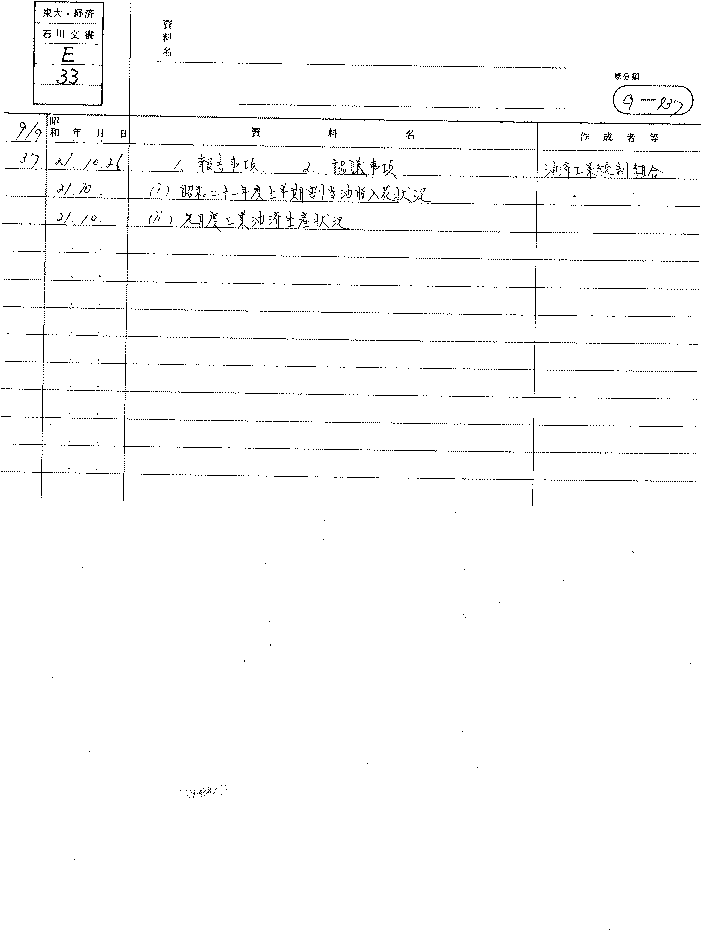 東大・経済
石川文書
E
33
資料名
原分類
9-237
9/9 昭和 年 月 日 資 料 名 作成者等
37 21.10.26 1. 報告事項 2. 協議事項 油済工業統制組合
21.10. (i) 昭和二十一年度上半期割当油脂入荷状況 〃
21.10. (ii) 九月度工業油済生産状況